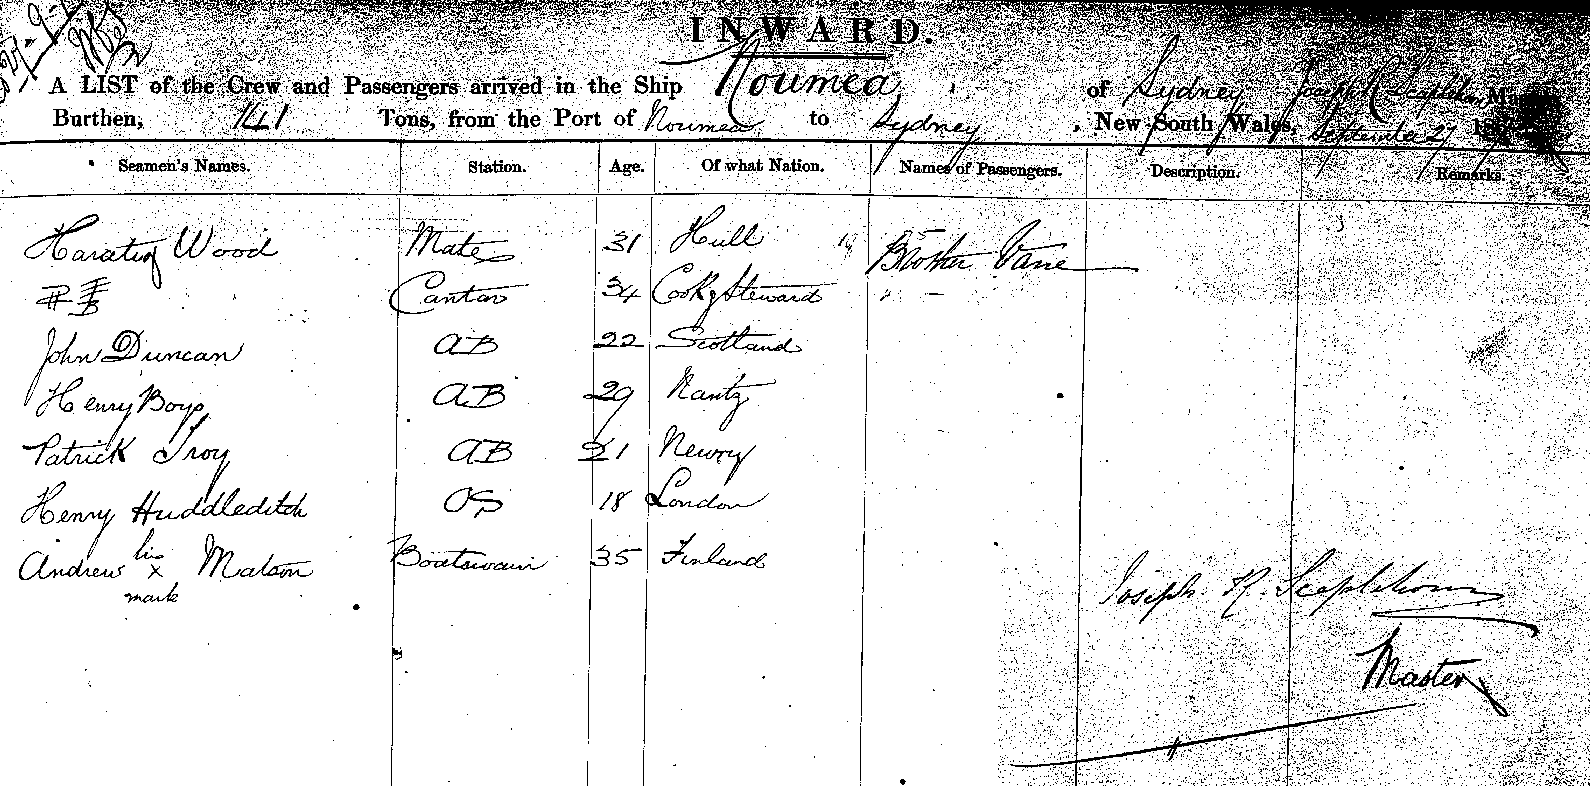 INWARD.
A LIST of the Crew and Passengers arrived in the Ship Noumea of Sydney Joseph R Scaplehorn
Burthen, 141 Tons, from the Port of Noumea to Sydney, New South Wales, September 27
Seamen's Names. Station. Age. Of what Nation. Names of Passengers. Description. Remarks.
Wood Mate 31 Hull Brother Vane
Canton 34 Cook & Steward
John Duncan AB 22 Scotland
Henry Boys AB 29 Nantz
Patrick Troy AB 21 Newry
Henry Huddleditch OS 18 London
Andrew his x mark Matson Boatswain 35 Finland
Joseph R. Scaplehorn
Master